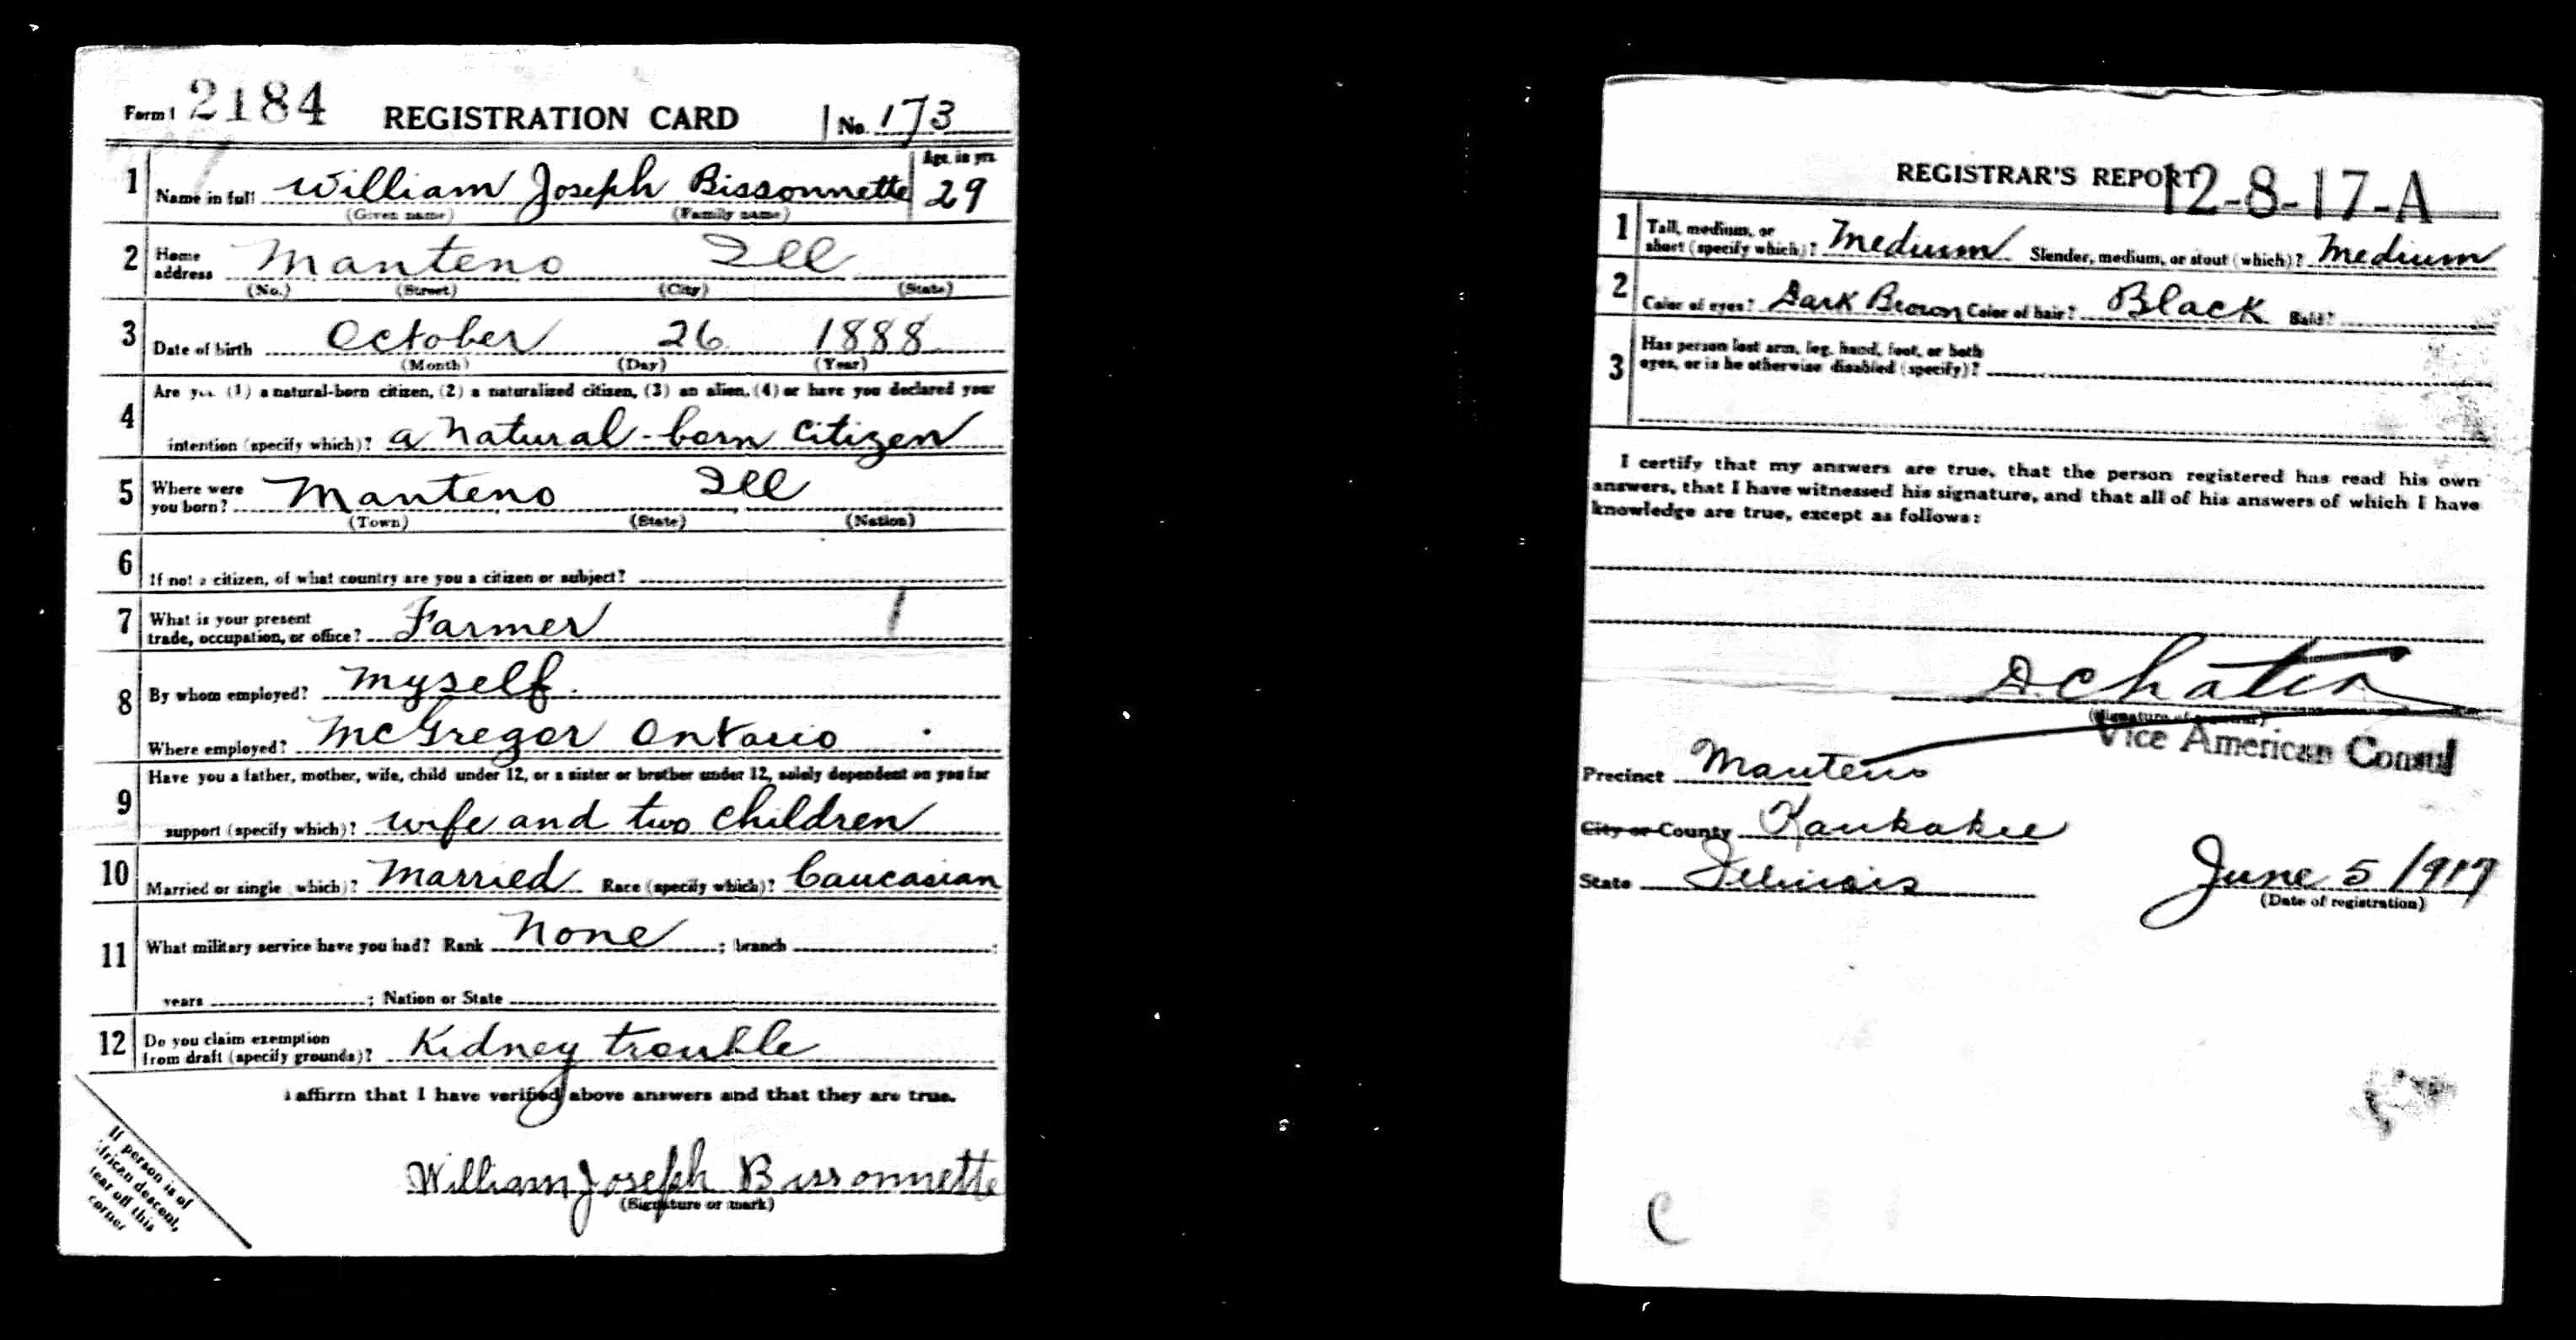 Form 1 2184 REGISTRATION CARD No. 173
1 Name in full William Joseph Bissonnette Age, in yrs. 29
(Given name) (Family name)
2 Home address Manteno Ill
(No.) (Street) (City) (State)
3 Date of birth October 26 1888
(Month) (Day) (Year)
Are you (1) a natural-born citizen, (2) a naturalized citizen, (3) an alien, (4) or have you declared your
4 intention (specify which)? a natural-born citizen
5 Where were you born? Manteno Ill
(Town) (State) (Nation)
6 If not a citizen, of what country are you a citizen or subject?
7 What is your present trade, occupation, or office? Farmer
8 By whom employed? Myself.
Where employed? McGregor Ontario
Have you a father, mother, wife, child under 12, or a sister or brother under 12, solely dependent on you for
9 support (specify which)? wife and two children
10 Married or single (which)? Married Race (specify which)? Caucasian
11 What military service have you had? Rank None ; branch ;
years ; Nation or State
12 Do you claim exemption from draft (specify grounds)? Kidney trouble
I affirm that I have verified above answers and that they are true.
William Joseph Bissonnette
(Signature or mark)
If person is of
African descent,
tear off this
corner
REGISTRAR'S REPORT 12-8-17-A
1 Tall, medium, or short (specify which)? Medium Slender, medium, or stout (which)? Medium
2 Color of eyes? Dark Brown Color of hair? Black Bald?
3 Has person lost arm, leg, hand, foot, or both
eyes, or is he otherwise disabled (specify)?
I certify that my answers are true, that the person registered has read his own
answers, that I have witnessed his signature, and that all of his answers of which I have
knowledge are true, except as follows:
(Signature of registrar)
Vice American Consul
Precinct Manteno
City or County Kankakee
State Illinois June 5 1917
(Date of registration)
C